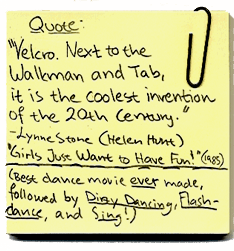 Quote:
"Velcro. Next to the
Walkman and Tab,
it is the coolest invention
of the 20th Century."
-Lynne Stone (Helen Hunt)
"Girls Just Want to Have Fun!" (1985)
(Best dance movie ever made,
followed by Dirty Dancing, Flash-
dance, and Sing!)